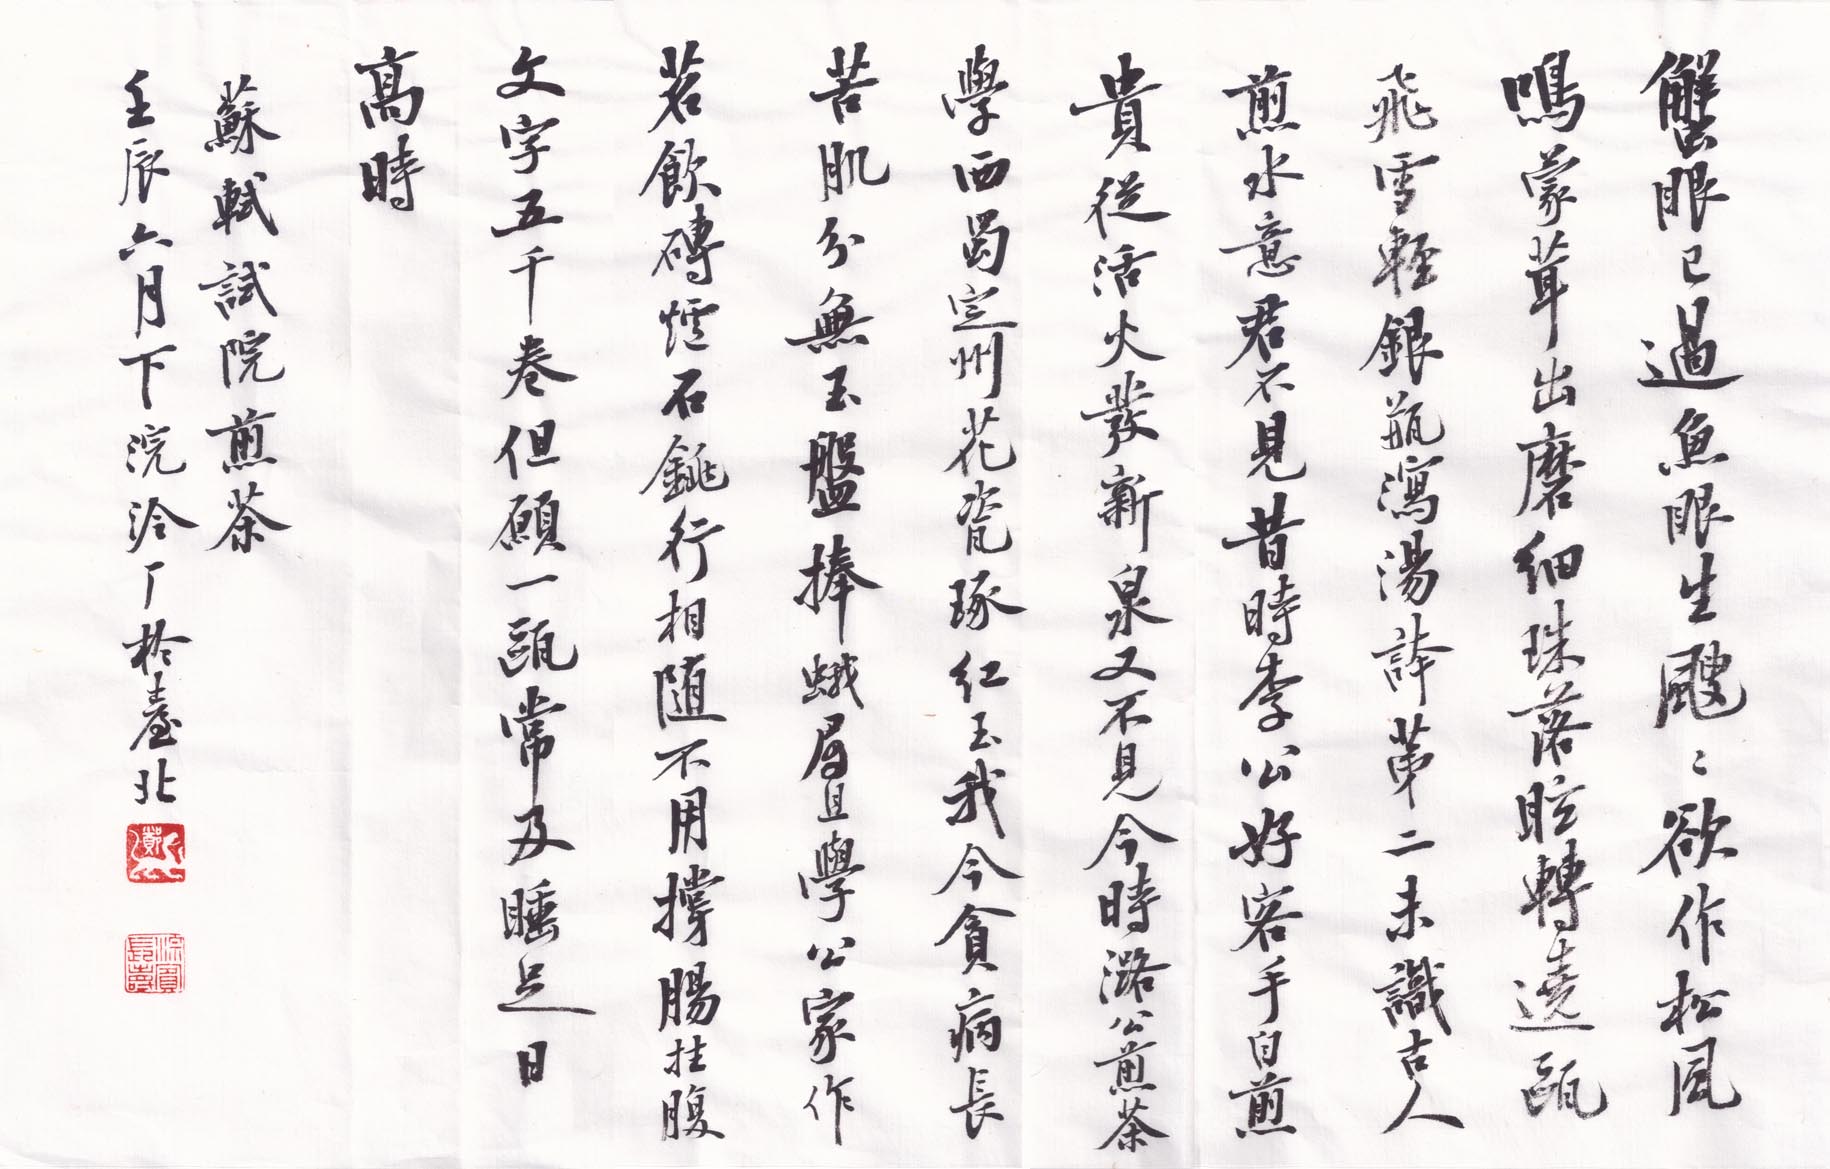 蟹眼已過魚眼生颼〻欲作松風
鳴蒙茸出磨細珠落眩轉遶甌
飛雪輕銀瓶瀉湯誇第二未識古人
煎水意君不見昔時李公好客手自煎
貴從活火發新泉又不見今時潞公煎茶
學西蜀定州花瓷琢紅玉我今貧病長
苦肌分無玉盤捧蛾眉且學公家作
茗飲磚爐石銚行相隨不用撐腸拄腹
文字五千卷但願一甌常及睡足日
高時
蘇軾試院煎茶
壬辰六月下浣泠厂於臺北